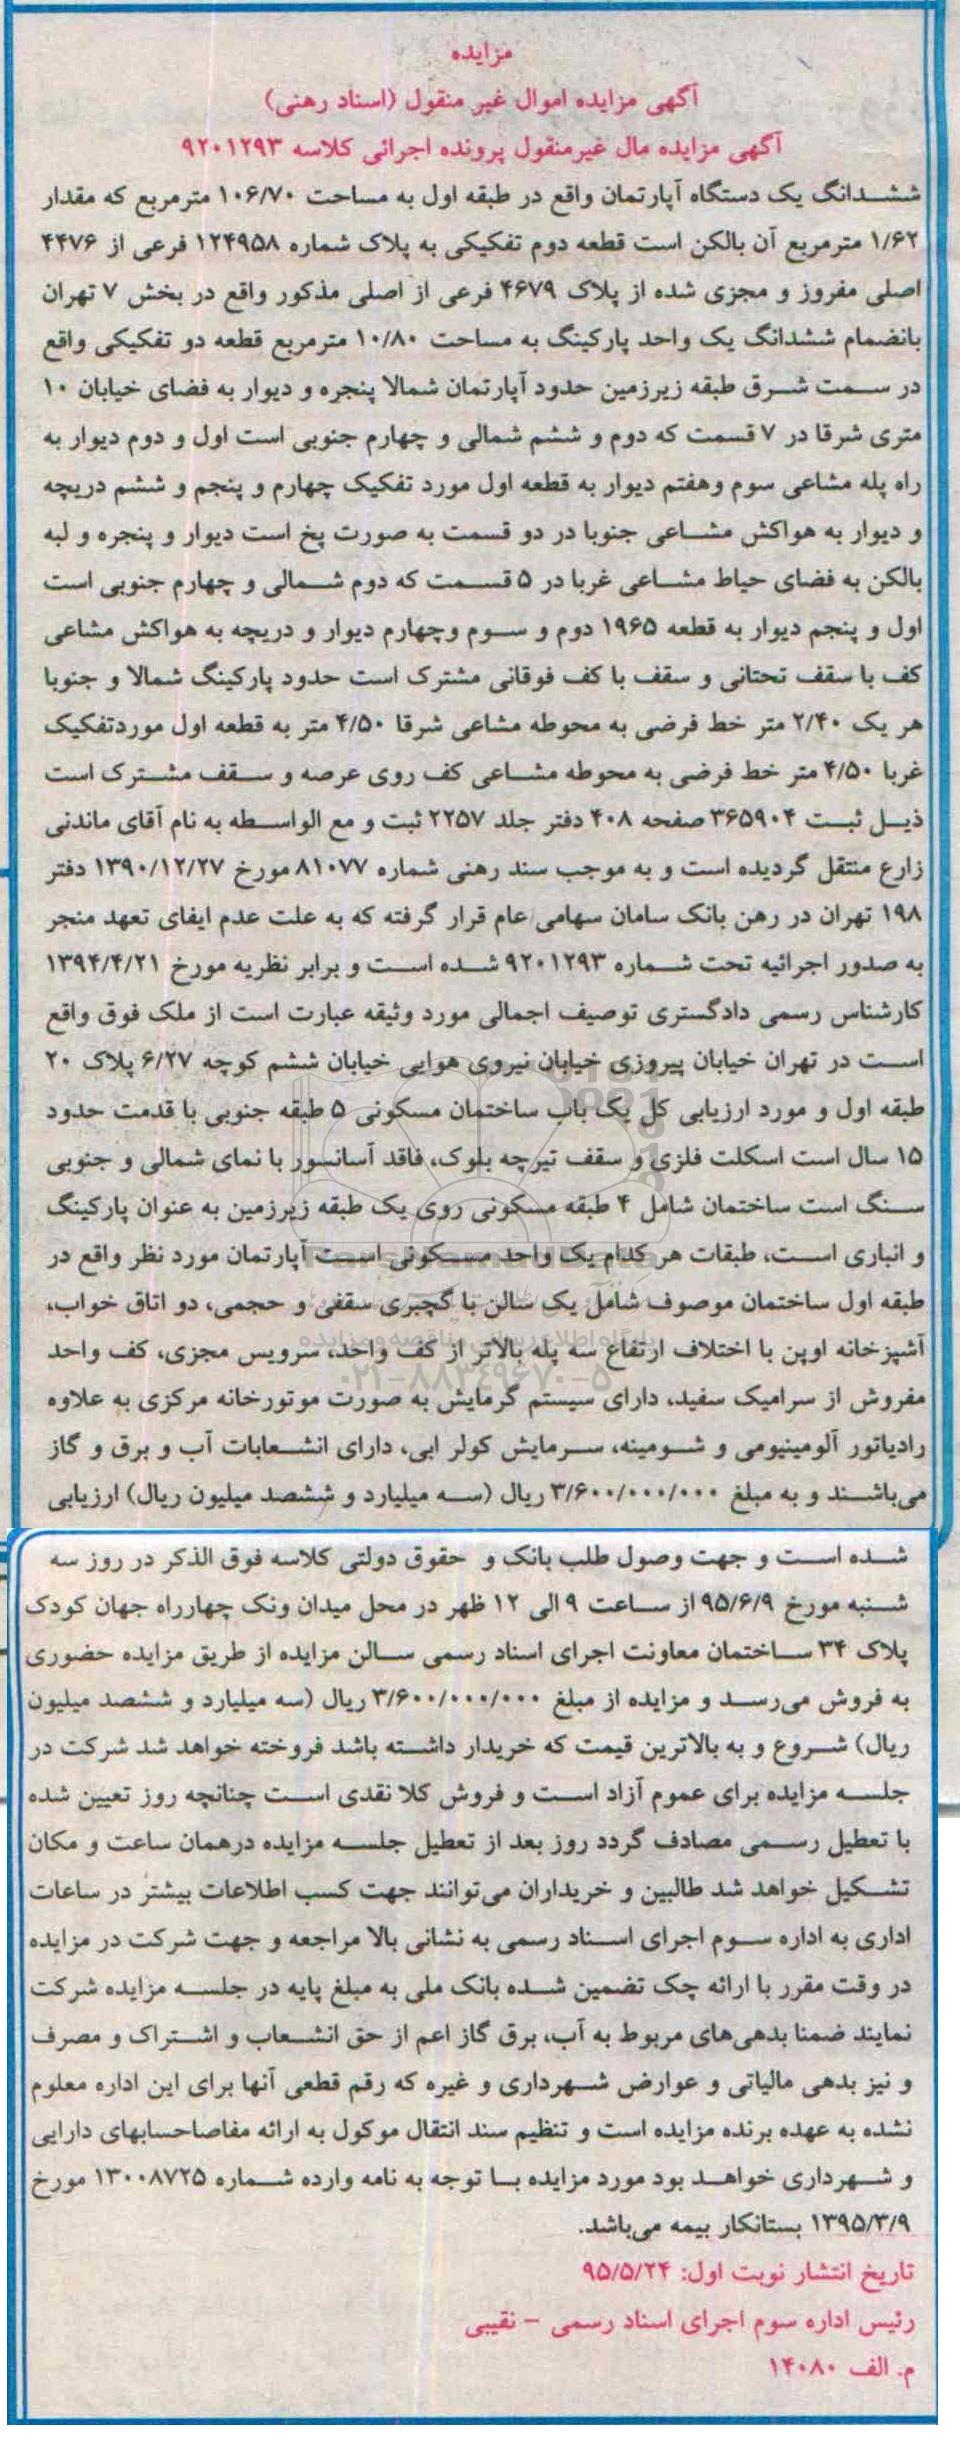 مزایده
آگهی مزایده اموال غیر منقول (اسناد رهنی)
آگهی مزایده مال غیرمنقول پرونده اجرائی کلاسه ۹۲۰۱۲۹۳
ششدانگ یک دستگاه آپارتمان واقع در طبقه اول به مساحت ۱۰۶/۷۰ مترمربع که مقدار
۱/۶۲ مترمربع آن بالکن است قطعه دوم تفکیکی به پلاک شماره ۱۲۴۹۵۸ فرعی از ۴۴۷۶
اصلی مفروز و مجزی شده از پلاک ۴۶۷۹ فرعی از اصلی مذکور واقع در بخش ۷ تهران
بانضمام ششدانگ یک واحد پارکینگ به مساحت ۱۰/۸۰ مترمربع قطعه دو تفکیکی واقع
در سمت شرق طبقه زیرزمین حدود آپارتمان شمالا پنجره و دیوار به فضای خیابان ۱۰
متری شرقا در ۷ قسمت که دوم و ششم شمالی و چهارم جنوبی است اول و دوم دیوار به
راه پله مشاعی سوم وهفتم دیوار به قطعه اول مورد تفکیک چهارم و پنجم و ششم دریچه
و دیوار به هواکش مشاعی جنوبا در دو قسمت به صورت پخ است دیوار و پنجره و لبه
بالکن به فضای حیاط مشاعی غربا در ۵ قسمت که دوم شمالی و چهارم جنوبی است
اول و پنجم دیوار به قطعه ۱۹۶۵ دوم و سوم وچهارم دیوار و دریچه به هواکش مشاعی
کف با سقف تحتانی و سقف با کف فوقانی مشترک است حدود پارکینگ شمالا و جنوبا
هر یک ۲/۴۰ متر خط فرضی به محوطه مشاعی شرقا ۴/۵۰ متر به قطعه اول موردتفکیک
غربا ۴/۵۰ متر خط فرضی به محوطه مشاعی کف روی عرصه و سقف مشترک است
ذیل ثبت ۳۶۵۹۰۴ صفحه ۴۰۸ دفتر جلد ۲۲۵۷ ثبت و مع الواسطه به نام آقای ماندنی
زارع منتقل گردیده است و به موجب سند رهنی شماره ۸۱۰۷۷ مورخ ۱۳۹۰/۱۲/۲۷ دفتر
۱۹۸ تهران در رهن بانک سامان سهامی عام قرار گرفته که به علت عدم ایفای تعهد منجر
به صدور اجرائیه تحت شماره ۹۲۰۱۲۹۳ شده است و برابر نظریه مورخ ۱۳۹۴/۴/۲۱
کارشناس رسمی دادگستری توصیف اجمالی مورد وثیقه عبارت است از ملک فوق واقع
است در تهران خیابان پیروزی خیابان نیروی هوایی خیابان ششم کوچه ۶/۲۷ پلاک ۲۰
طبقه اول و مورد ارزیابی کل یک باب ساختمان مسکونی ۵ طبقه جنوبی با قدمت حدود
۱۵ سال است اسکلت فلزی و سقف تیرچه بلوک، فاقد آسانسور با نمای شمالی و جنوبی
سنگ است ساختمان شامل ۴ طبقه مسکونی روی یک طبقه زیرزمین به عنوان پارکینگ
و انباری است، طبقات هر کدام یک واحد مسکونی است آپارتمان مورد نظر واقع در
طبقه اول ساختمان موصوف شامل یک سالن با گچبری سقفی و حجمی، دو اتاق خواب،
آشپزخانه اوپن با اختلاف ارتفاع سه پله بالاتر از کف واحد، سرویس مجزی، کف واحد
۰۲۱-۸۸۳۴۹۶۷۰-۵
مفروش از سرامیک سفید، دارای سیستم گرمایش به صورت موتورخانه مرکزی به علاوه
رادیاتور آلومینیومی و شومینه، سرمایش کولر ابی، دارای انشعابات آب و برق و گاز
می‌باشند و به مبلغ ۳/۶۰۰/۰۰۰/۰۰۰ ریال (سه میلیارد و ششصد میلیون ریال) ارزیابی
شده است و جهت وصول طلب بانک و حقوق دولتی کلاسه فوق الذکر در روز سه
شنبه مورخ ۹۵/۶/۹ از ساعت ۹ الی ۱۲ ظهر در محل میدان ونک چهارراه جهان کودک
پلاک ۳۴ ساختمان معاونت اجرای اسناد رسمی سالن مزایده از طریق مزایده حضوری
به فروش می‌رسد و مزایده از مبلغ ۳/۶۰۰/۰۰۰/۰۰۰ ریال (سه میلیارد و ششصد میلیون
ریال) شروع و به بالاترین قیمت که خریدار داشته باشد فروخته خواهد شد شرکت در
جلسه مزایده برای عموم آزاد است و فروش کلا نقدی است چنانچه روز تعیین شده
با تعطیل رسمی مصادف گردد روز بعد از تعطیل جلسه مزایده درهمان ساعت و مکان
تشکیل خواهد شد طالبین و خریداران می‌توانند جهت کسب اطلاعات بیشتر در ساعات
اداری به اداره سوم اجرای اسناد رسمی به نشانی بالا مراجعه و جهت شرکت در مزایده
در وقت مقرر با ارائه چک تضمین شده بانک ملی به مبلغ پایه در جلسه مزایده شرکت
نمایند ضمنا بدهی‌های مربوط به آب، برق گاز اعم از حق انشعاب و اشتراک و مصرف
و نیز بدهی مالیاتی و عوارض شهرداری و غیره که رقم قطعی آنها برای این اداره معلوم
نشده به عهده برنده مزایده است و تنظیم سند انتقال موکول به ارائه مفاصاحسابهای دارایی
و شهرداری خواهد بود مورد مزایده با توجه به نامه وارده شماره ۱۳۰۰۸۷۲۵ مورخ
۱۳۹۵/۳/۹ بستانکار بیمه می‌باشد.
تاریخ انتشار نوبت اول: ۹۵/۵/۲۴
رئیس اداره سوم اجرای اسناد رسمی - نقیبی
م. الف ۱۴۰۸۰